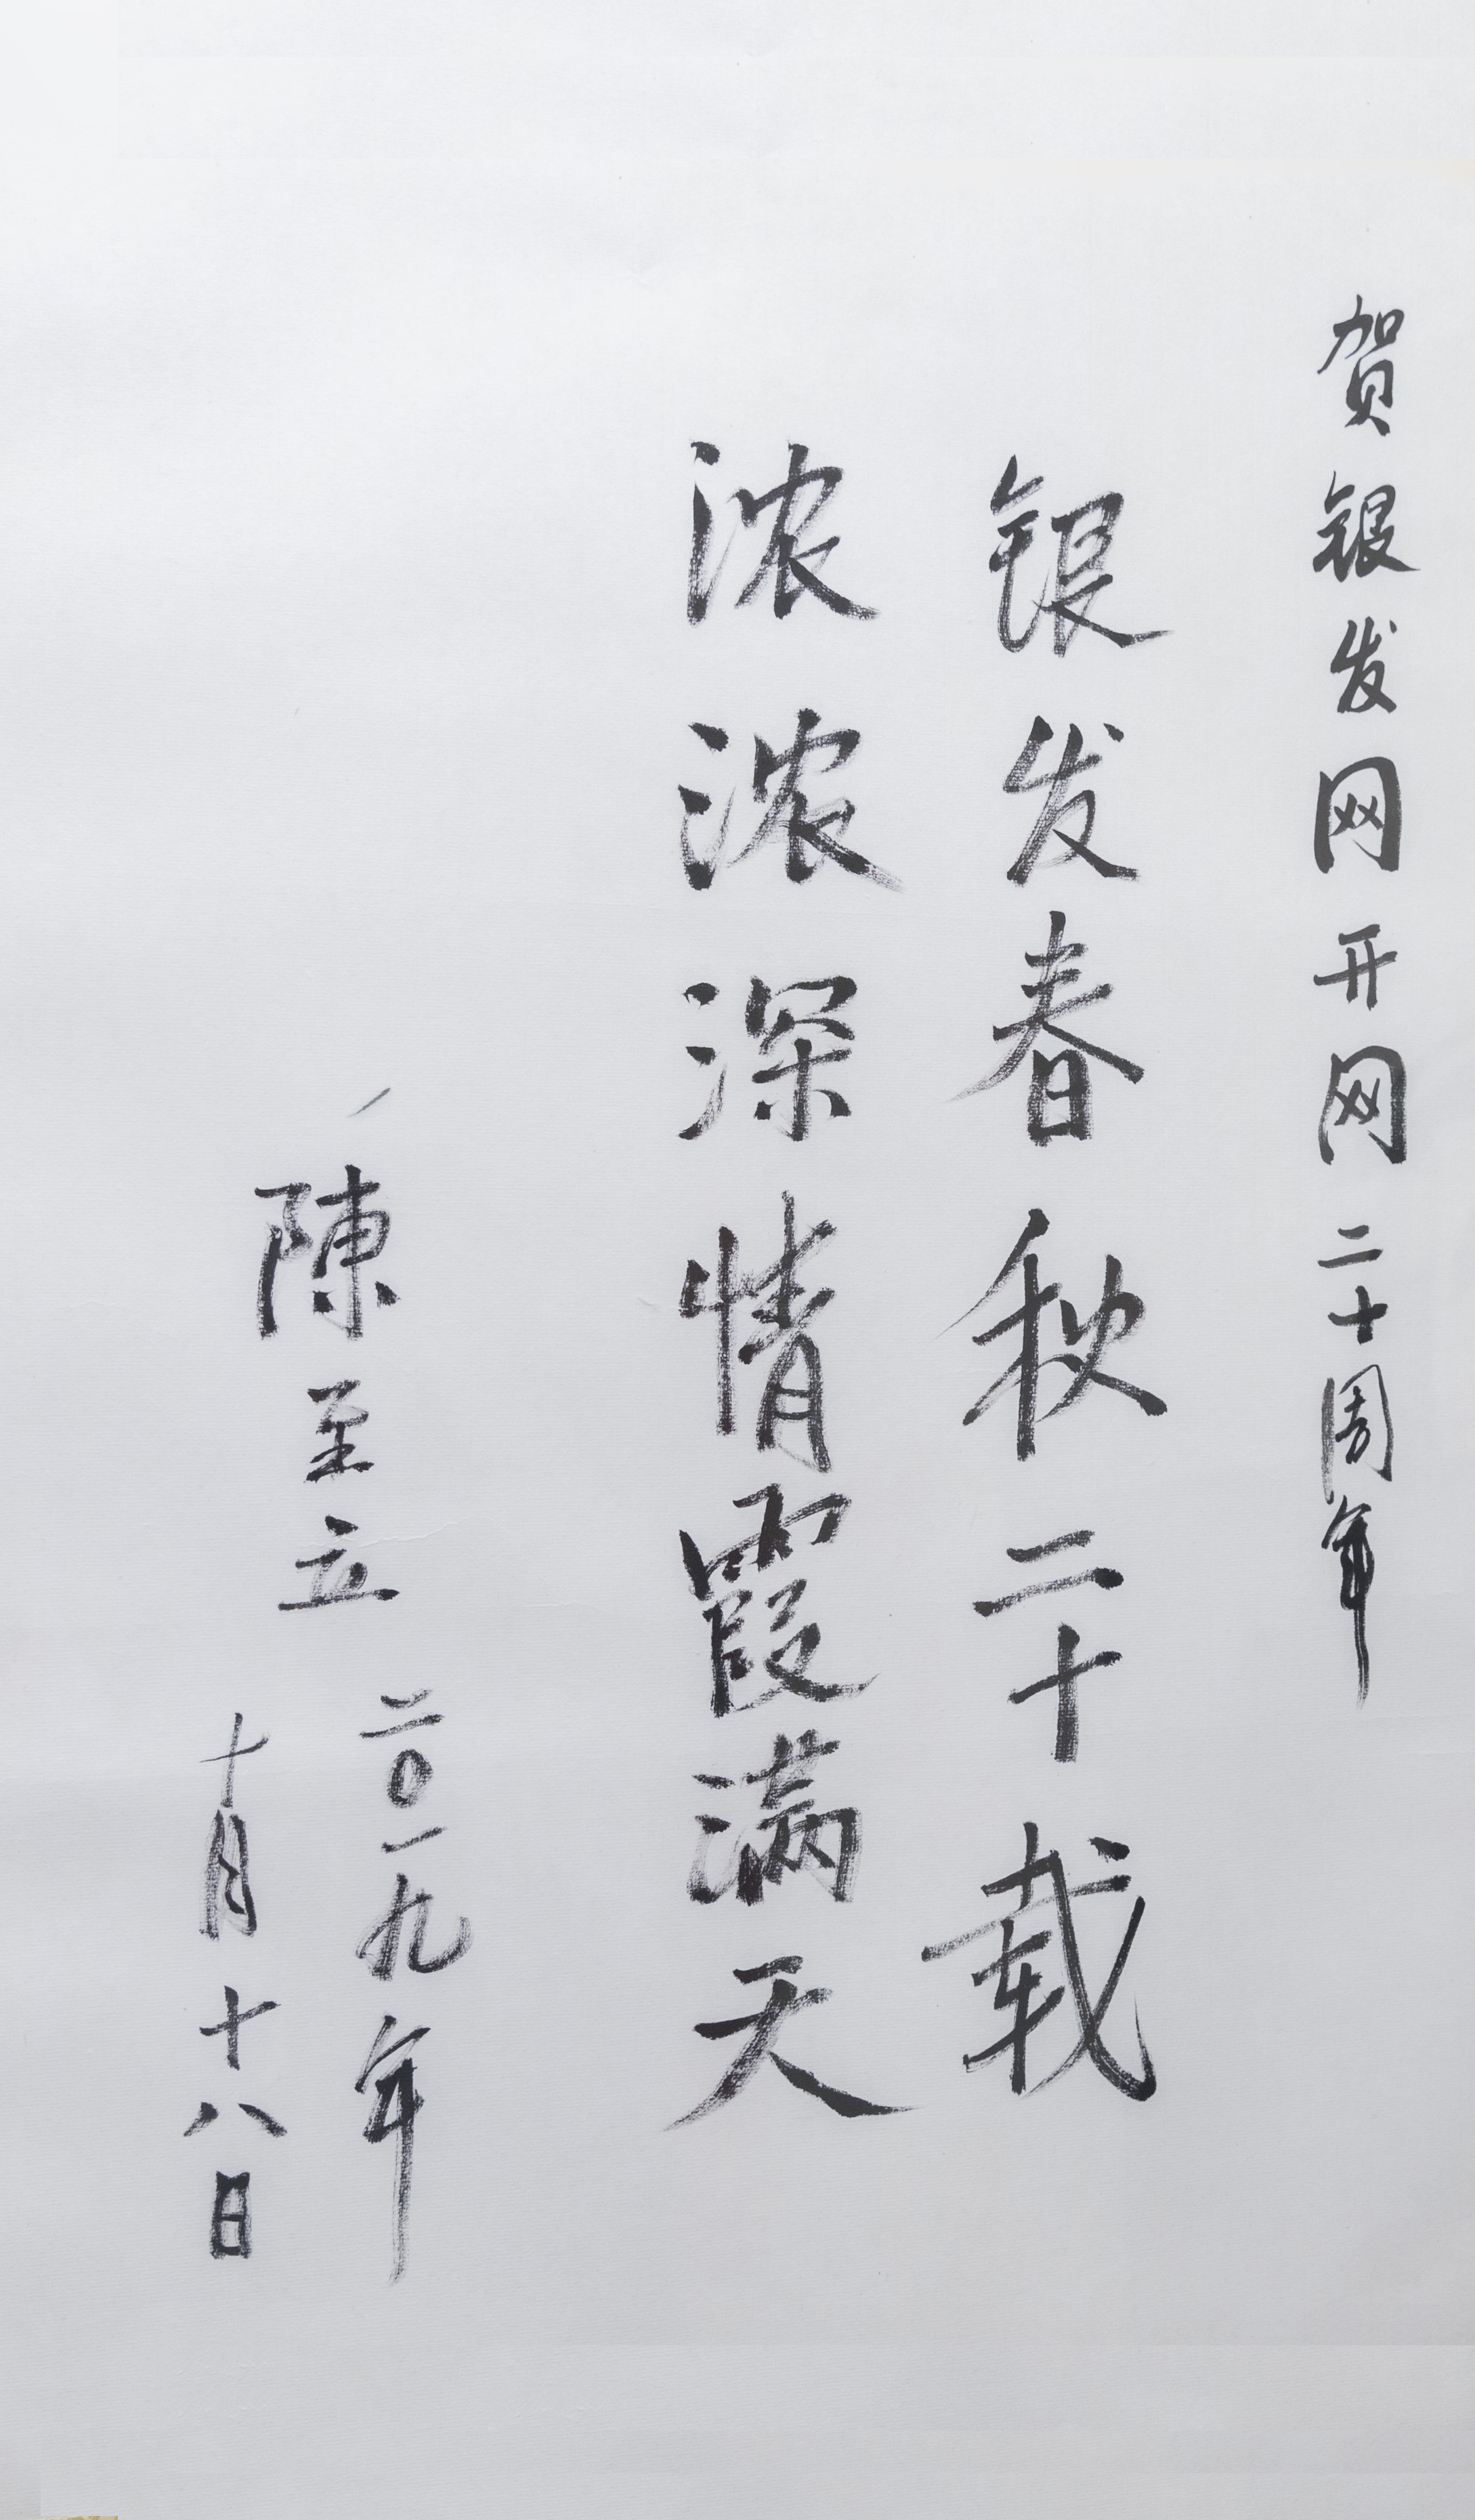 贺银发网开网二十周年
银发春秋二十载
浓浓深情霞满天
陳至立
二〇一九年
十月十八日